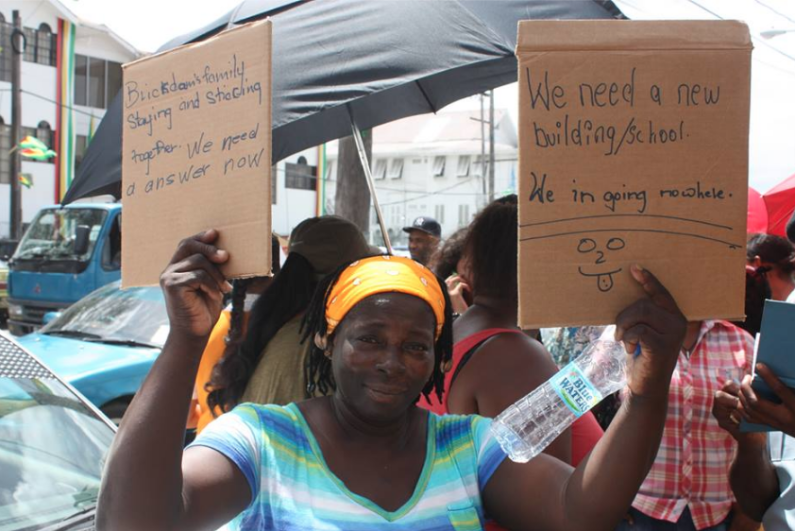 Brickdam's family
Staying and Sticking
together. We need
a answer now
We need a new
building/school.
We in going nowhere.
Blue
WATER